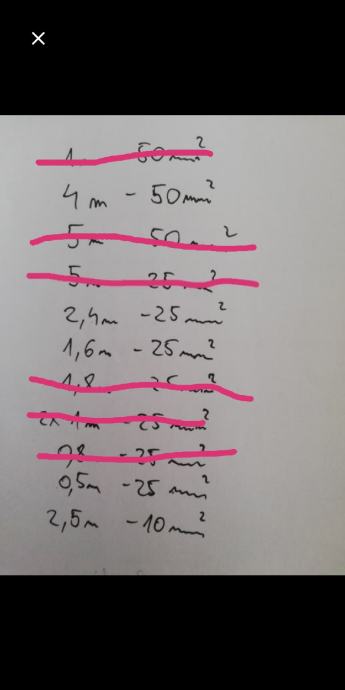 1 50mm²
4m - 50mm²
5m 50mm²
5m 25mm²
2,4m - 25mm²
1,6m - 25mm²
1,8 25mm²
2x 1m - 25mm²
0,8 - 25mm²
0,5m - 25mm²
2,5m - 10mm²